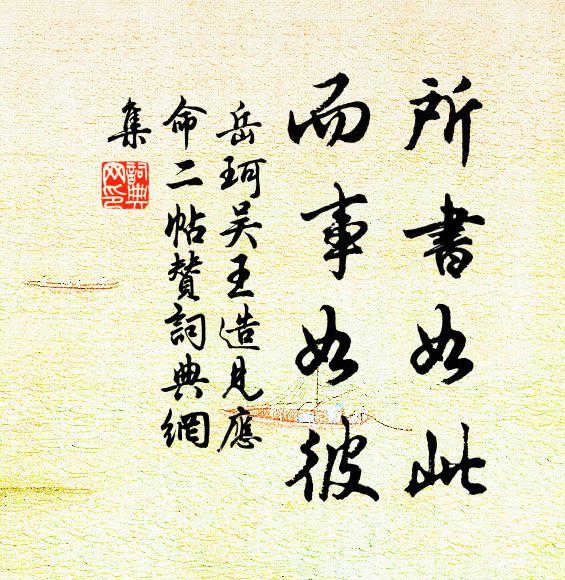 所書如此
而事如彼
岳珂吴王造見應
命二帖贊詞典網
集
詞典網印